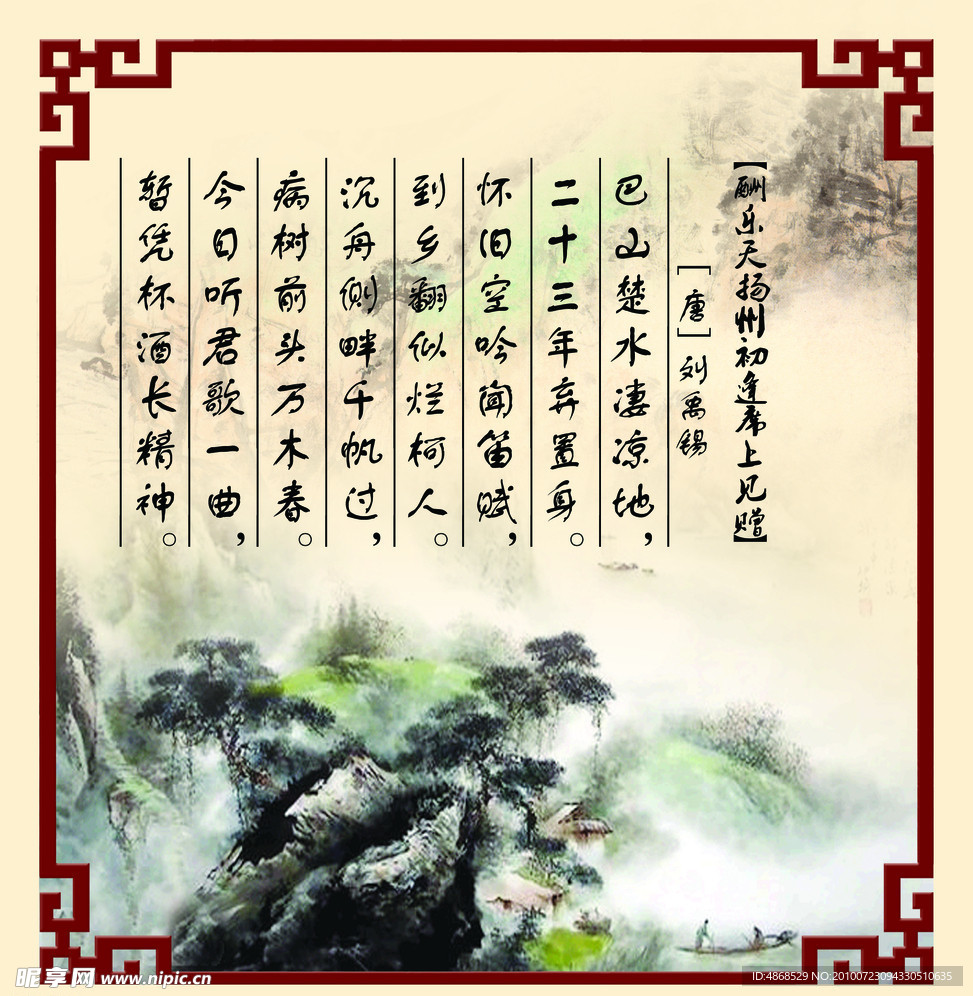 【酬乐天扬州初逢席上见赠】
[唐]刘禹锡
巴山楚水凄凉地，
二十三年弃置身。
怀旧空吟闻笛赋，
到乡翻似烂柯人。
沉舟侧畔千帆过，
病树前头万木春。
今日听君歌一曲，
暂凭杯酒长精神。
昵享网 www.nipic.cn
ID:4868529 NO:20100723094330510635